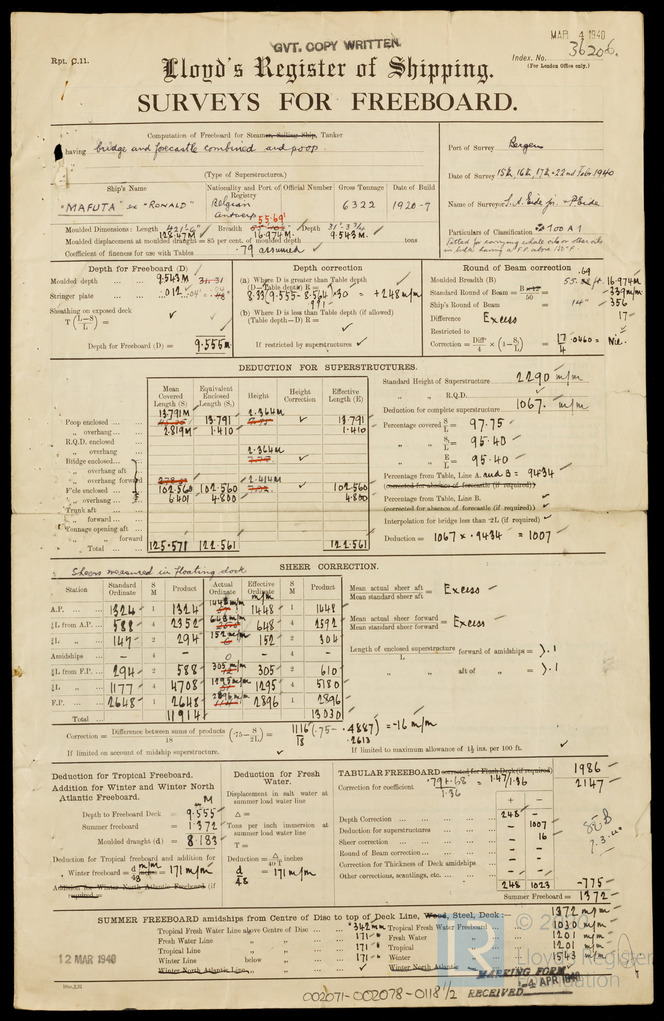 GVT. COPY WRITTEN.
MAR 4 1940
Rpt. C.11.
Index. No. 36206.
(For London Office only.)
Lloyd's Register of Shipping.
SURVEYS FOR FREEBOARD.
Computation of Freeboard for Steamer, Sailing Ship, Tanker
having bridge and forecastle combined and poop.
(Type of Superstructures.)
Port of Survey Bergen
Date of Survey 15th, 16th, 17th - 22nd Feb 1940
Name of Surveyor
Particulars of Classification 100 A1
Fitted for carrying whale oil or other oils
in bulk having a F.P. above 150°F.
Ship's Name
Nationality and Port of Registry
Official Number
Gross Tonnage
Date of Build
"MAFUTA" ex "RONALD"
Belgian
Antwerp
6322
1920-7
Moulded Dimensions: Length 421'-6" Breadth 55.69' Depth 31'-3¾
128.47M 16.974M 9.543M.
Moulded displacement at moulded draught = 85 per cent. of moulded depth tons
Coefficient of fineness for use with Tables .79 assumed
Depth for Freeboard (D)
Moulded depth ... 9.543M
Stringer plate ... .012
Sheathing on exposed deck
T (L-S/L) =
Depth for Freeboard (D) = 9.555M
Depth correction
(a) Where D is greater than Table depth
(D-Table depth) R =
8.33 (9.555 - 8.564) .30 = +248 m/m
(b) Where D is less than Table depth (if allowed)
(Table depth-D) R =
If restricted by superstructures
Round of Beam correction
Moulded Breadth (B) 55.69 ft. 16.974m
Standard Round of Beam = B×12/50 = 339 m/m
Ship's Round of Beam = 14" 356
Difference Excess 17
Restricted to
Correction = Diff/4 × (1-S₁/L) = 17/4 .0460 = Nil.
DEDUCTION FOR SUPERSTRUCTURES.
Mean Covered Length (S)
Equivalent Enclosed Length (S₁)
Height
Height Correction
Effective Length (E)
Poop enclosed ... 13.791M 13.791 2.364M 13.791
„ overhang ... 2.819M 1.410 1.410
R.Q.D. enclosed
„ overhang 2.364M
Bridge enclosed...
„ overhang aft
„ overhang forward 2.414M
F'cle enclosed ... 102.560 102.560 102.560
„ overhang ... 6.401 4.800 4.800
Trunk aft
„ forward ...
Tonnage opening aft
„ „ forward
Total ... 125.571 122.561 122.561
Standard Height of Superstructure 2290 m/m
„ „ R.Q.D.
Deduction for complete superstructure 1067. m/m
Percentage covered S/L = 97.75
„ „ S₁/L = 95.40
„ „ E/L = 95.40
Percentage from Table, Line A. and B = 94.34
(corrected for absence of forecastle (if required))
Percentage from Table, Line B.
(corrected for absence of forecastle (if required))
Interpolation for bridge less than ·2L (if required)
Deduction = 1067 × .9434 = 1007
Sheers measured in floating dock
SHEER CORRECTION.
Station
Standard Ordinate
S M
Product
Actual Ordinate
Effective Ordinate
S M
Product
A.P. ... 1324 1 1324 1448 m/m 1448 1 1448
⅙L from A.P. ... 588 4 2352 648 m/m 648 4 2592
⅓L „ ... 147 2 294 152 m/m 152 2 304
Amidships ... - 4 - 0 - 4 -
⅓L from F.P. ... 294 2 588 305 m/m 305 2 610
⅙L „ ... 1177 4 4708 1295 m/m 1295 4 5180
F.P. ... 2648 1 2648 2896 m/m 2896 1 2896
Total ... 11914 13030
Mean actual sheer aft / Mean standard sheer aft = Excess
Mean actual sheer forward / Mean standard sheer forward = Excess
Length of enclosed superstructure/L forward of amidships = >.1
„ „ aft of „ = >.1
Correction = Difference between sums of products/18 (·75-S/2L) = 1116/18 (.75 - .4887) = -16 m/m
.2613
If limited on account of midship superstructure.
If limited to maximum allowance of 1½ ins. per 100 ft.
Deduction for Tropical Freeboard.
Addition for Winter and Winter North
Atlantic Freeboard.
M
Depth to Freeboard Deck = 9.555
Summer freeboard = 1.372
Moulded draught (d) = 8.183
Deduction for Tropical freeboard and addition for
Winter freeboard = d/48 m/m = 171 m/m
Addition for Winter North Atlantic Freeboard (if required)
Deduction for Fresh Water.
Displacement in salt water at
summer load water line
Δ =
Tons per inch immersion at
summer load water line
T =
Deduction = Δ/40T inches
d/48 = 171 m/m
TABULAR FREEBOARD corrected for Flush Deck (if required) 1986
Correction for coefficient .79+.68/1.36 = 1.47/1.36 2147
+ -
Depth Correction ... 248 -
Deduction for superstructures ... - 1007
Sheer correction ... - 16
Round of Beam correction ... - -
Correction for Thickness of Deck amidships - -
Other corrections, scantlings, etc. ... - -
248 1023 -775
Summer Freeboard = 1372
SUMMER FREEBOARD amidships from Centre of Disc to top of Deck Line, Wood, Steel, Deck: 1372 m/m
Tropical Fresh Water Line above Centre of Disc ... 342 mm
Fresh Water Line „ „ 171
Tropical Line „ „ 171
Winter Line below „ 171
Winter North Atlantic Line „
Tropical Fresh Water Freeboard 1030 m/m
Fresh Water „ 1201 m/m
Tropical „ 1201 m/m
Winter „ 1543 m/m
Winter North Atlantic „
12 MAR 1940
MARKING FORM
RECEIVED 4 APR 1940
002071-002078-0118 1/2
LR
Lloyd's Register
Foundation